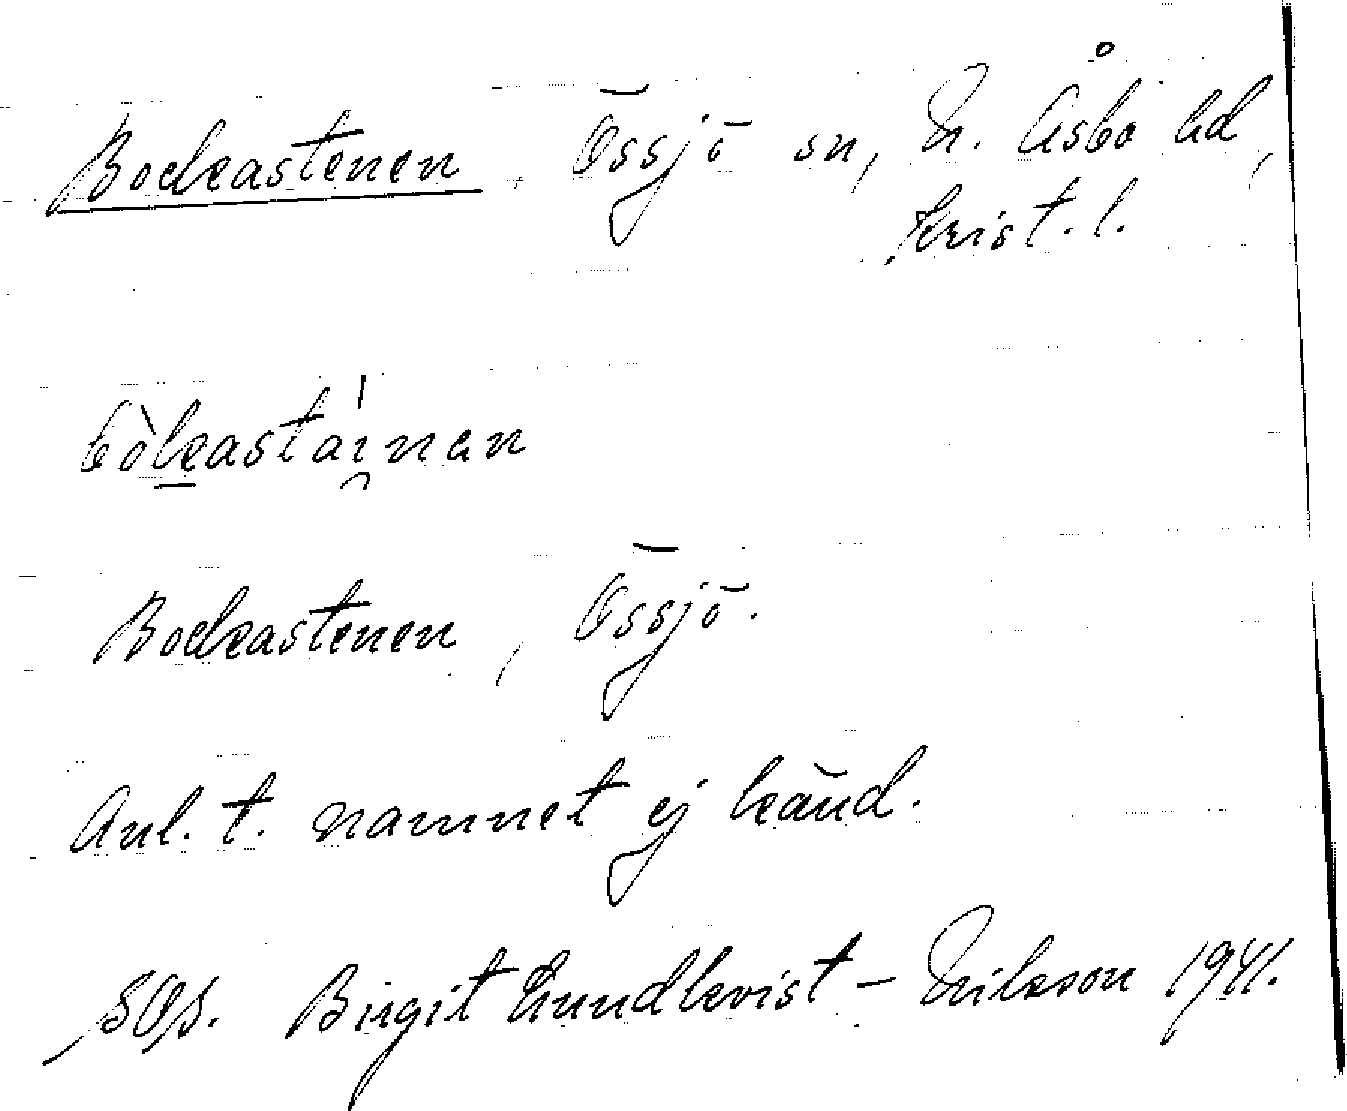 Bockastenen, Össjö sn, N. Åsbo hd,
Krist. l.
bòkastáinan
Bockastenen, Össjö.
Anl. t. namnet ej känd.
SOS. Birgit Lundkvist - Nilsson 1941.